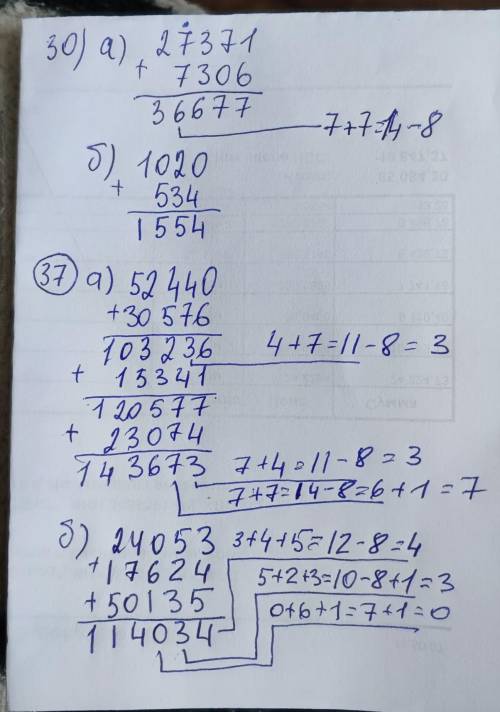 30) а) 27371
+ 7306
36677
7+7=14-8
б) 1020
+ 534
1554
37 а) 52440
+30576
103236
4+7=11-8=3
+ 15341
120577
+ 23074
143673
7+4=11-8=3
7+7=14-8=6+1=7
б) 24053
+17624
+50135
114034
3+4+5=12-8=4
5+2+3=10-8+1=3
0+6+1=7+1=0
Сумма